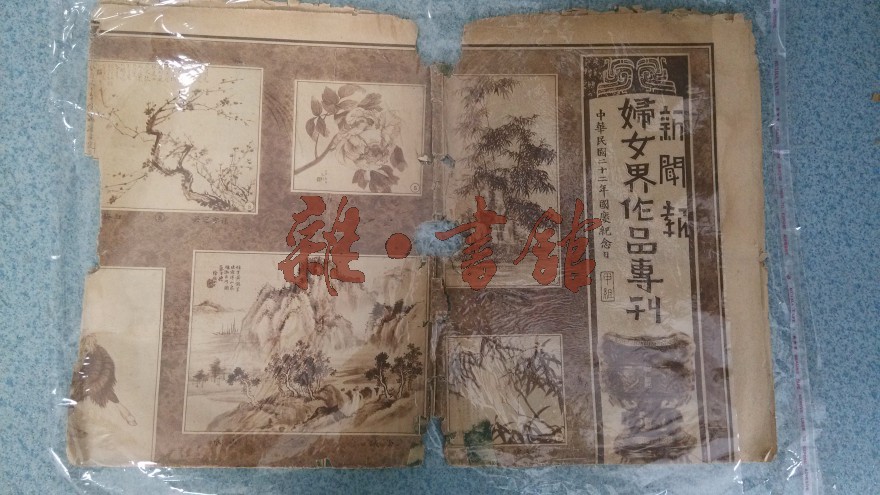 新聞報
婦女界作品專刊
中華民國二十二年國慶紀念日
甲組
雜·書館